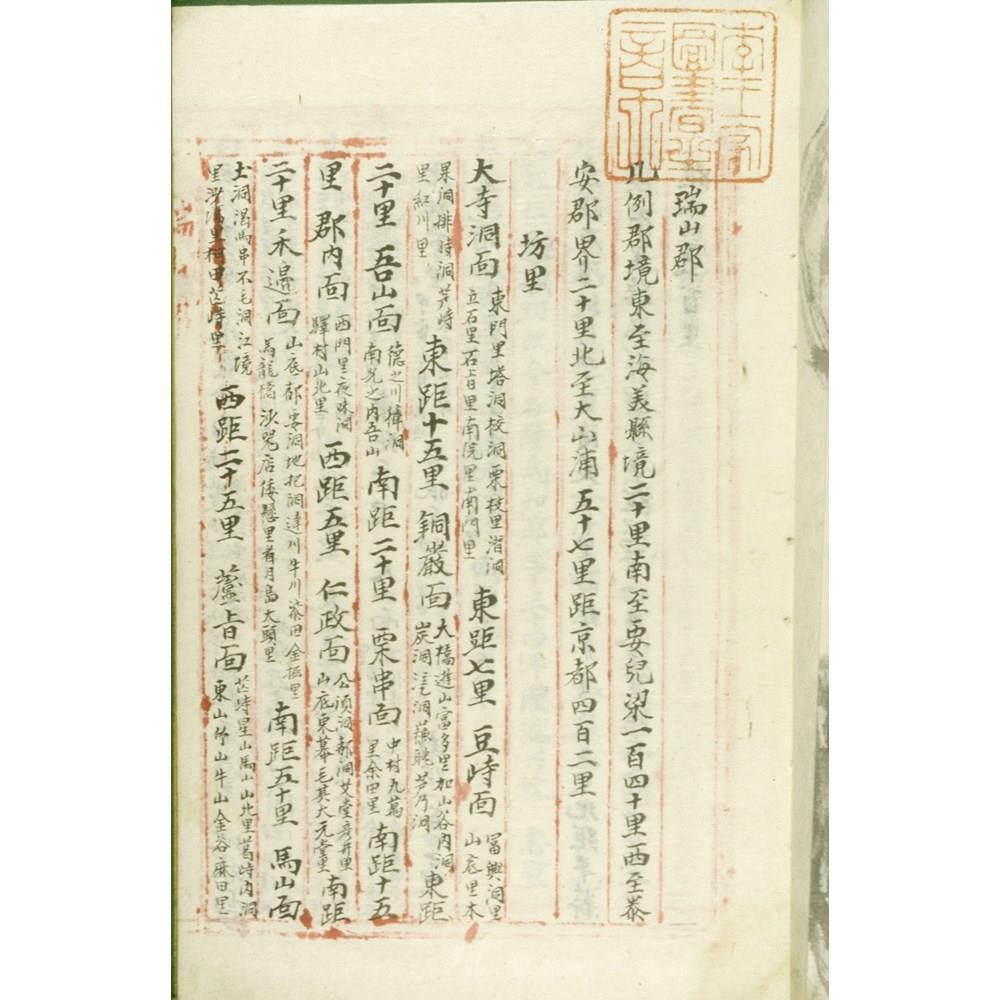 瑞山郡
凡例郡境東至海美縣境二十里南至要兒梁一百四十里西至泰
安郡界二十里北至大山浦五十七里距京都四百二里
坊里
大寺洞面 東門里塔洞校洞栗枝里省洞 立石里石上里南院里南門里 東距七里 豆峙面 冨興洞里 山底里木
果洞排峙洞芦峙 里紅川里 東距十五里 銅巖面 大橋道山富多里加山谷內洞 炭洞 芦乃洞 東距
二十里 吾山面 德之川獐洞 南 之內吾山 南距二十里 栗串面 中村九萬 里余田里 南距十五
里 郡內面 西門里夜味洞 驛村山北里 西距五里 仁政面 公須洞 洞艾堂彦井里 山底東幕毛 大元堂里 南距
二十里 禾邊面 山底都要洞地 洞達川牛川 田金 里 馬龍橋沙器店倭懸里看月島大頭里 南距五十里 馬山面
土洞渴馬串不毛洞江境 里 里 田芚峙里 西距二十五里 蘆旨面 芚峙星山馬山山北里葛峙內洞 東山 山牛山金谷麻田里
李王家圖書之章